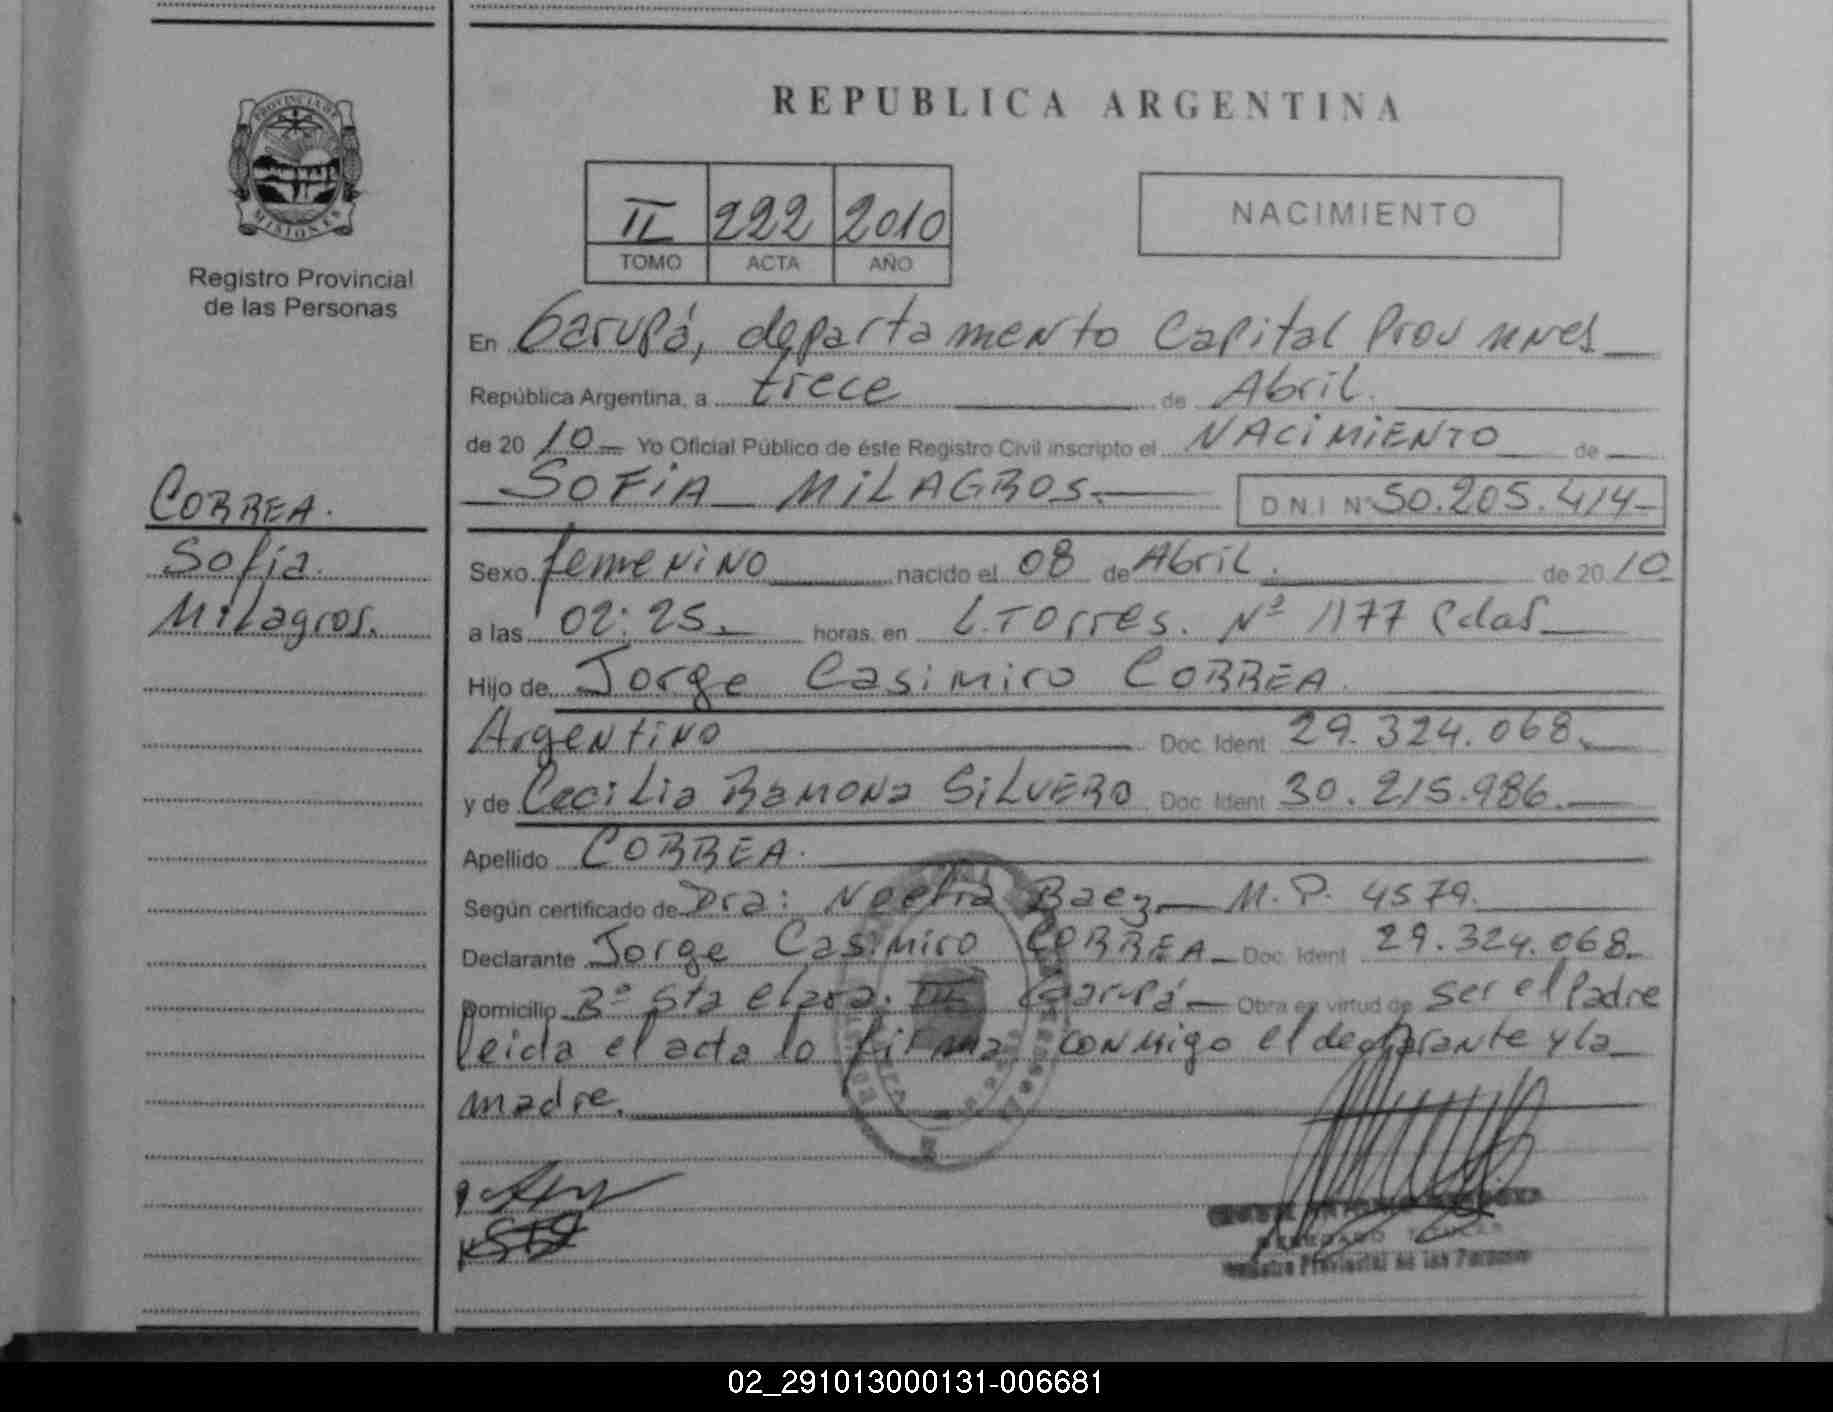 REPUBLICA ARGENTINA
PROVINCIA DE
MISIONES
Registro Provincial
de las Personas
II 222 2010
TOMO ACTA AÑO
NACIMIENTO
En Garupá, departamento Capital Prov mnes
República Argentina, a trece de Abril.
de 2010 Yo Oficial Público de éste Registro Civil inscripto el NACIMIENTO de
SOFIA MILAGROS. D.N.I Nº 50.205.414
CORREA.
Sofia.
Milagros.
Sexo femenino nacido el 08 de Abril. de 2010
a las 02:25. horas, en L. Torres. Nº 1177 Pdas
Hijo de Jorge Casimiro CORREA.
Argentino Doc. Ident 29.324.068.
y de Cecilia Ramona SILVERO Doc. Ident 30.215.986.
Apellido CORREA.
Según certificado de Dra: Noelia Baez M.P. 4579.
Declarante Jorge Casimiro CORREA Doc. Ident 29.324.068.
Domicilio Bº Sta Clara. III Garupá Obra en virtud de ser el Padre
leida el acta lo firma conmigo el declarante y la
madre.
Registro Provincial de las Personas
02_291013000131-006681